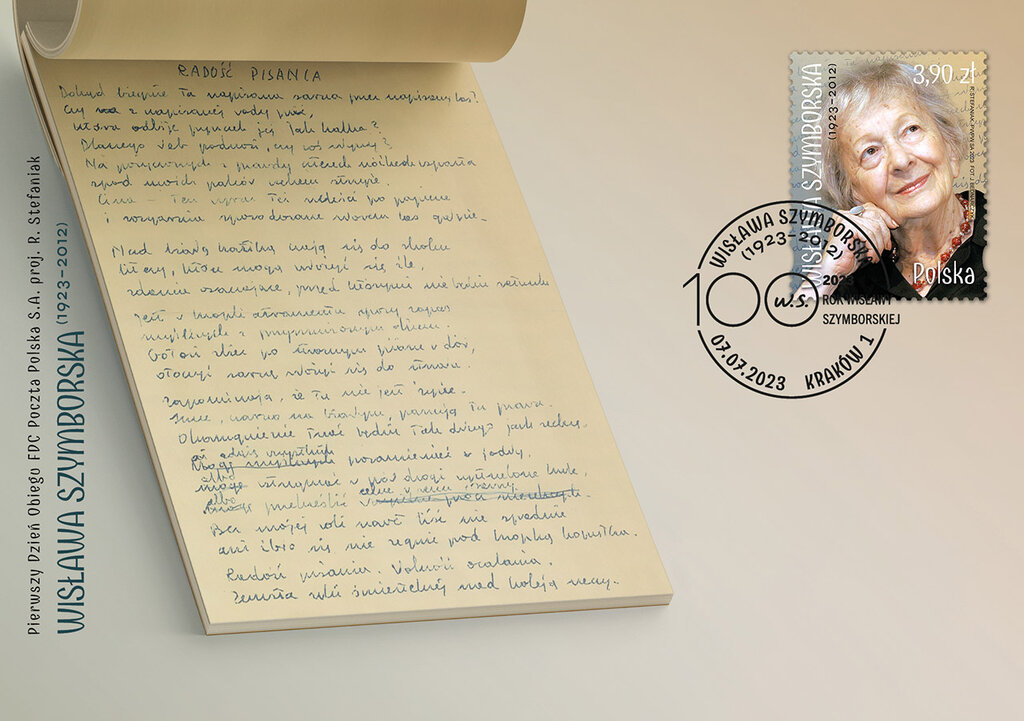 RADOŚĆ PISANIA
Dokąd biegnie ta napisana sarna przez napisany las?
Czy z napisanej wody pić,
która odbije pyszczek jej jak kalka?
Dlaczego łeb podnosi, czy coś słyszy?
Na pożyczonych z prawdy czterech nóżkach wsparta
spod moich palców uchem strzyże.
Cisza – ten wyraz też szeleści po papierze
i rozgarnia spowodowane słowem las gałęzie.
Nad białą kartką czają się do skoku
litery, które mogą ułożyć się źle,
zdania osaczające, przed którymi nie będzie ratunku
Jest w kropli atramentu spory zapas
myśliwych z przymrużonym okiem.
Gotowi zbiec po stromym piórze w dół,
otoczyć sarnę złożyć się do strzału.
Zapominają, że tu nie jest życie.
Inne, czarno na białym, panują tu prawa.
Okamgnienie trwać będzie tak długo jak zechcę.
albo
albo
Bez mojej woli nawet liść nie spadnie
ani źdźbło się nie zegnie pod kropką kopytka.
Radość pisania.
Zemsta ręki śmiertelnej
Pierwszy Dzień Obiegu FDC Poczta Polska S.A. proj. R. Stefaniak
WISŁAWA SZYMBORSKA (1923-2012)
WISŁAWA SZYMBORSKA
(1923-2012)
3,90 zł
Polska
WISŁAWA SZYMBORSKA
(1923-2012)
100 w.S.
2023
ROK WISŁAWY
SZYMBORSKIEJ
07.07.2023 KRAKÓW 1